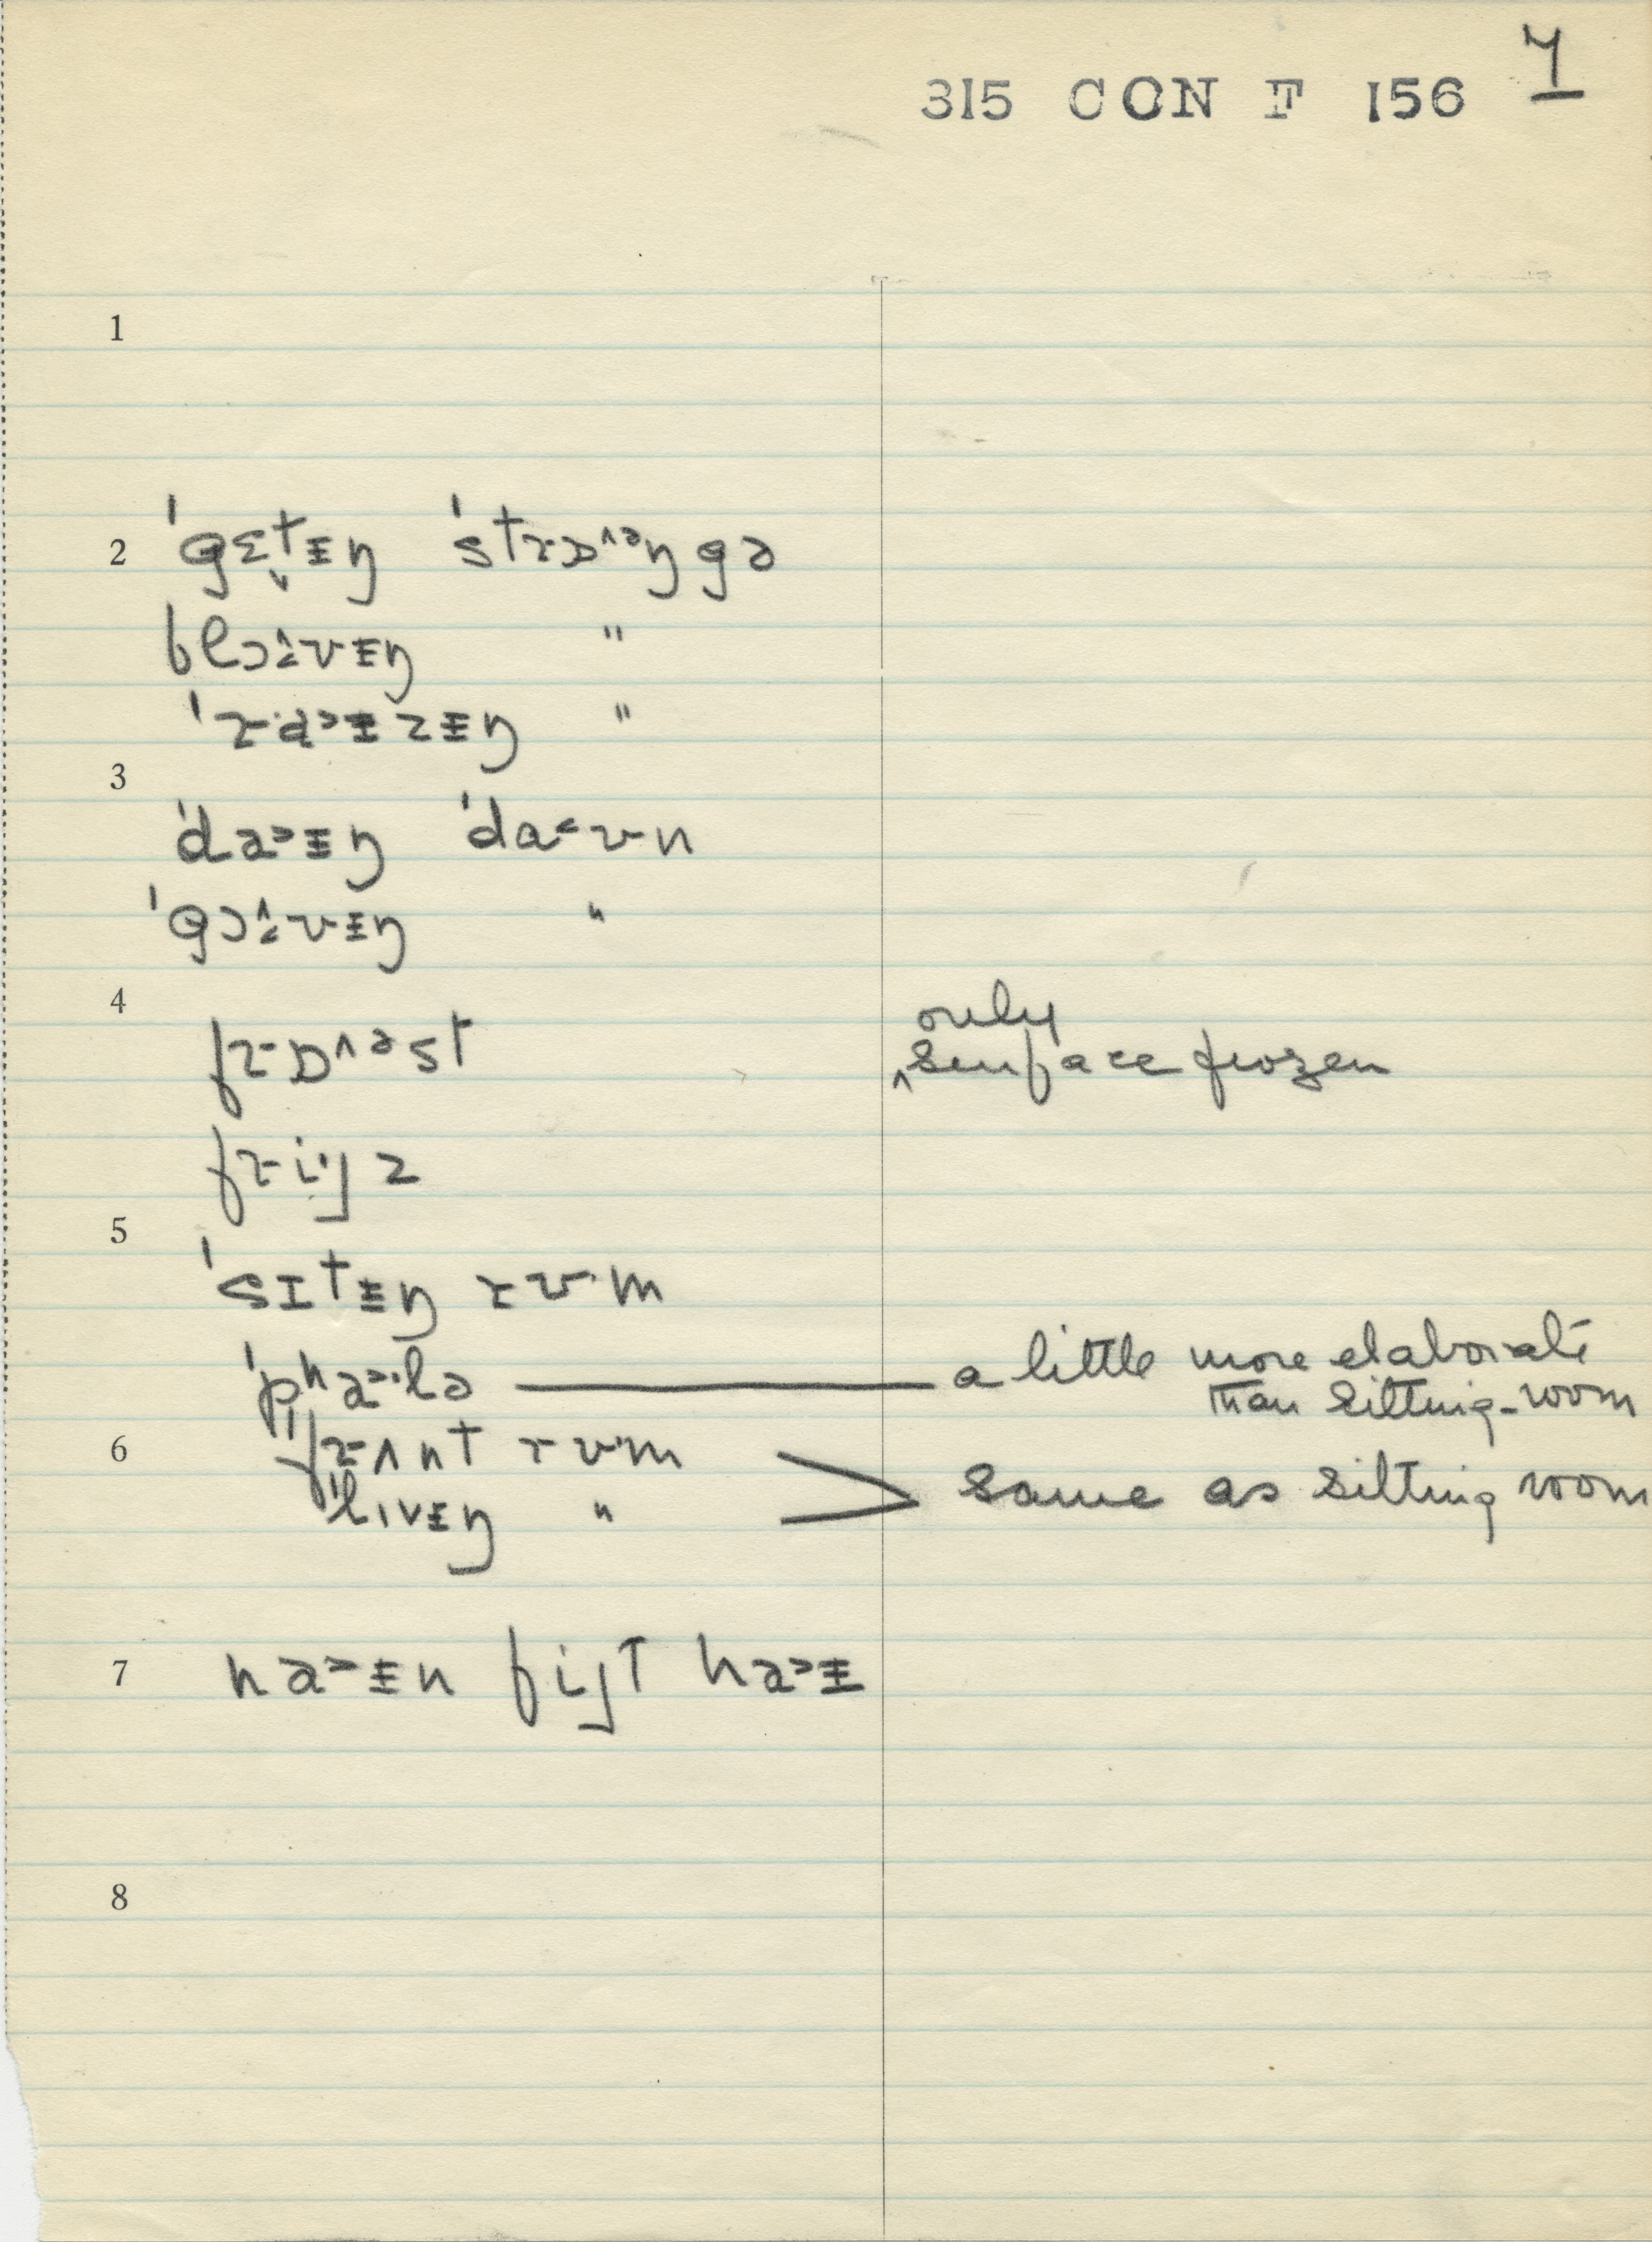 315 CON F 156 7
1
2 ˈgɛ˅tɨŋ ˈstrɒ^ᵊŋgə
blɔ^ʊvɨŋ "
ˈra>ɨzɨŋ "
3
ˈda>ɨŋ ˈda<ʊn
ˈgɔ^ʊvɨŋ "
4
frɒ^ᵊst
only
‸surface frozen
frijz
5
ˈsɪtɨŋ rʊ·m
ˈpʰa>·lə — a little more elaborate
than sitting-room
6 ˈˈfrʌnt rʊ·m
ˈˈlɪvɨŋ " > same as sitting room
7 na>ɨn fijt ha>ɨ
8